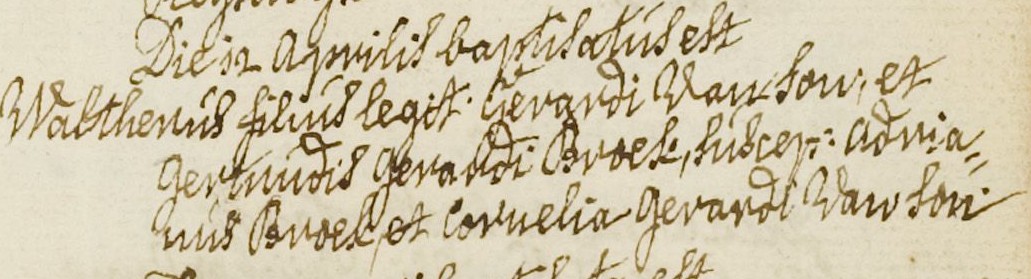 Die 12 Aprilis baptisatus est
Waltherus filius legit: Gerardi Van Son, et
Gertrudis Gerardi Broek, suscep: Adria=
nus Broek, et Cornelia Gerardi Van Son